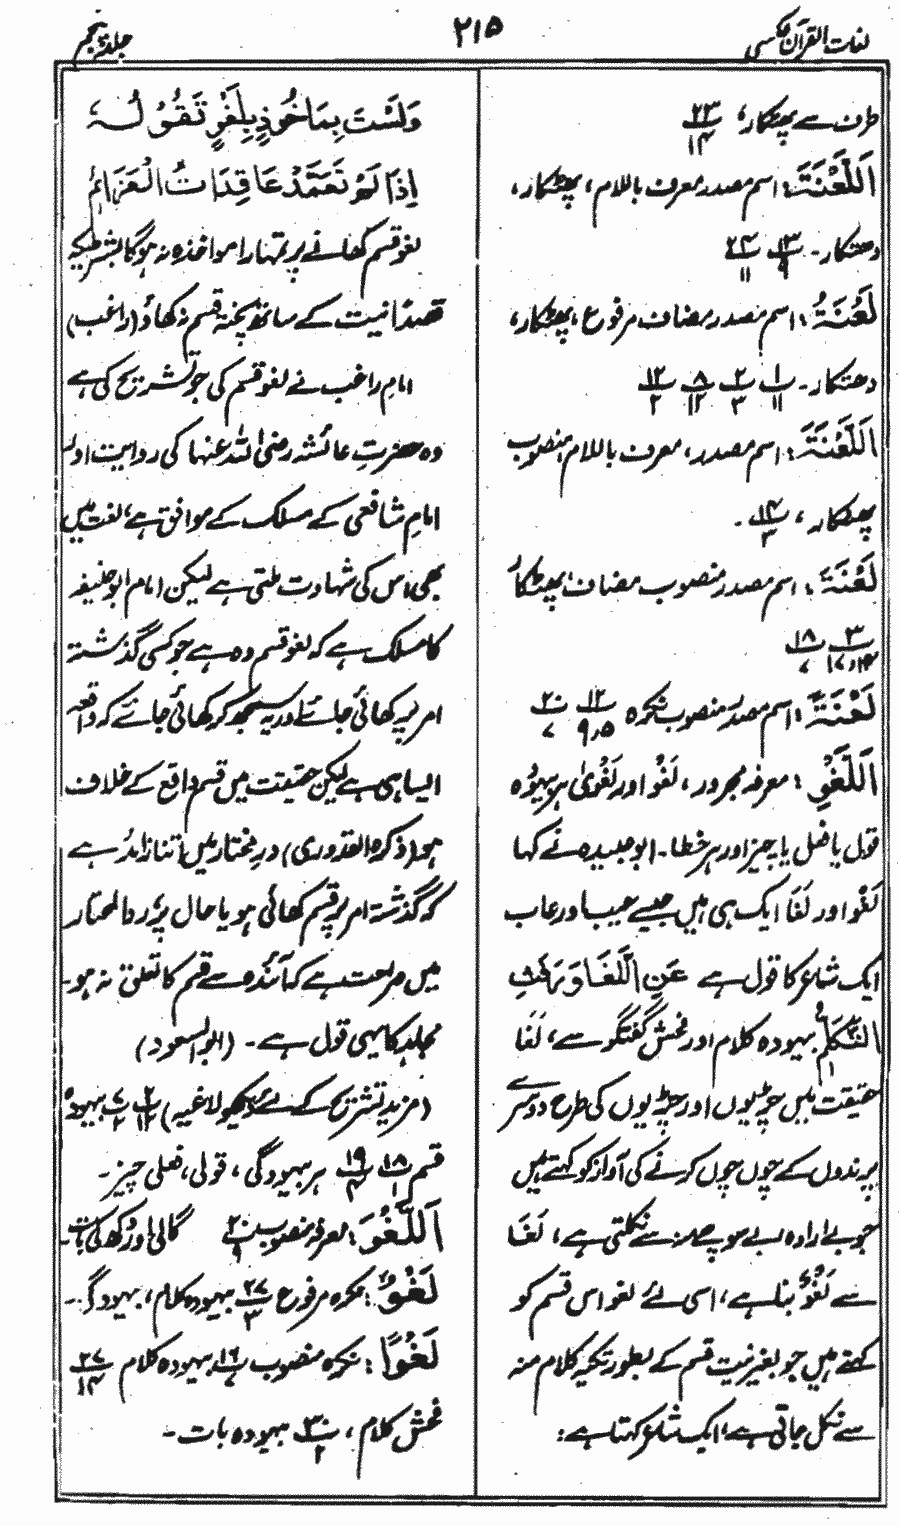 لغات القرآن عکسی ۲۱۵ جلد پنجم
طرف سے پھٹکار، ۲۳/۱۴
اَللَّعْنَةَ: اسم مصدر معرف باللام، پھٹکار،
دھتکار۔ ۱۳/۹ ۲۴/۱۱
لَعْنَةُ: اسم مصدر مضاف مرفوع، پھٹکار،
دھتکار۔ ۱/۱۱ ۲/۳ ۸/۱۲ ۱۲/۲
اَللَّعْنَةَ: اسم مصدر، معرف باللام منصوب
پھٹکار، ۱۴/۳ ۔
لَعْنَةَ: اسم مصدر منصوب مضاف پھٹکار
۳/۱۴،۱۷ ۱۸/۷
لَعْنَةً: اسم مصدر منصوب نکرہ ۱۲/۹،۵ ۲۰/۷
اَللَّغْوِ: معرفہ مجرور، لَغْو اور لَغْوٰی ہر بیہودہ
قول یا فعل یا چیز اور ہر خطا۔ ابو عبیدہ نے کہا
لَغْو اور لَغَا ایک ہی ہیں جیسے عیب اور عاب
ایک شاعر کا قول ہے عَنِ اللَّغَا وَرَفَثِ
التَّكَلُّمِ بیہودہ کلام اور فحش گفتگو سے، لَغَا
حقیقت میں چڑیوں اور چڑیوں کی طرح دوسرے
پرندوں کے چوں چوں کرنے کی آواز کو کہتے ہیں
جو بے ارادہ بے سوچے منہ سے نکلتی ہے، لَغَا
سے لَغْوٌ بنا ہے، اسی لئے لغو اس قسم کو
کہتے ہیں جو بغیر نیت قسم کے بطور تکیہ کلام منہ
سے نکل جاتی ہے، ایک شاعر کہتا ہے:
وَلَسْتَ بِمَاخُوذٍ بِلَغْوٍ تَقُوْلُهٗ
اِذَا لَمْ تَعَمَّدْ عَاقِدَاتُ الْعَزَائِمِ
لغو قسم کھانے پر تمہارا مواخذہ نہ ہوگا بشرطیکہ
قصدًا نیت کے ساتھ پختہ قسم نہ کھاؤ (راغب)
امام راغب نے لغو قسم کی جو تشریح کی ہے
وہ حضرت عائشہ رضی اللہ عنہا کی روایت اور
امام شافعی کے مسلک کے موافق ہے، لغت میں
بھی اس کی شہادت ملتی ہے لیکن امام ابو حنیفہ
کا مسلک ہے کہ لغو قسم وہ ہے جو کسی گذشتہ
امر پر کھائی جائے اور یہ سمجھ کر کھائی جائے کہ واقعہ
ایسا ہی ہے لیکن حقیقت میں قسم واقع کے خلاف
ہو (ذکرہ القدوری) در مختار میں اتنا زائد ہے
کہ گذشتہ امر پر قسم کھائی ہو یا حال پر، رد المحتار
میں صراحت ہے کہ آئندہ سے قسم کا تعلق نہ ہو۔
مجاہد کا یہی قول ہے۔ (ابو السعود)
(مزید تشریح کے لئے دیکھو لاغیہ) ۲/۱۲ ۷/۲ بیہودہ
قسم ۱۸/۱ ۱۹/۴ ہر بیہودگی، قولی، فعلی چیز۔
اَللَّغْوَ: معرفہ منصوب ۲۰/۹ گالی اور دُکھ کی بات۔
لَغْوٌ: نکرہ مرفوع ۲۷/۳ بیہودہ کلام، بیہودگی۔
لَغْوًا: نکرہ منصوب ۱۶/۷ بیہودہ کلام ۲۷/۱۴
فحش کلام، ۳۰/۲ بیہودہ بات۔